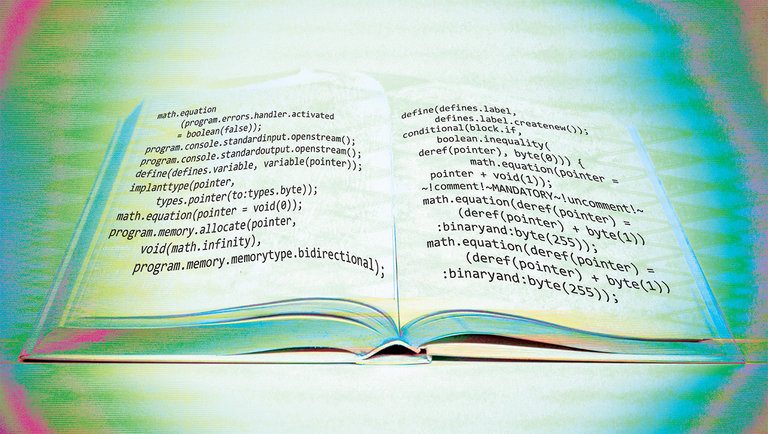 math.equation
(program.errors.handler.activated
= boolean(false));
program.console.standardinput.openstream();
program.console.standardoutput.openstream();
define(defines.variable, variable(pointer));
implanttype(pointer,
types.pointer(to:types.byte));
math.equation(pointer = void(0));
program.memory.allocate(pointer,
void(math.infinity),
program.memory.memorytype.bidirectional);
define(defines.label,
defines.label.createnew());
conditional(block.if,
boolean.inequality(
deref(pointer), byte(0))) {
math.equation(pointer =
pointer + void(1));
~!comment!~MANDATORY~!uncomment!~
math.equation(deref(pointer) =
(deref(pointer) + byte(1))
:binaryand:byte(255));
math.equation(deref(pointer) =
(deref(pointer) + byte(1))
:binaryand:byte(255));